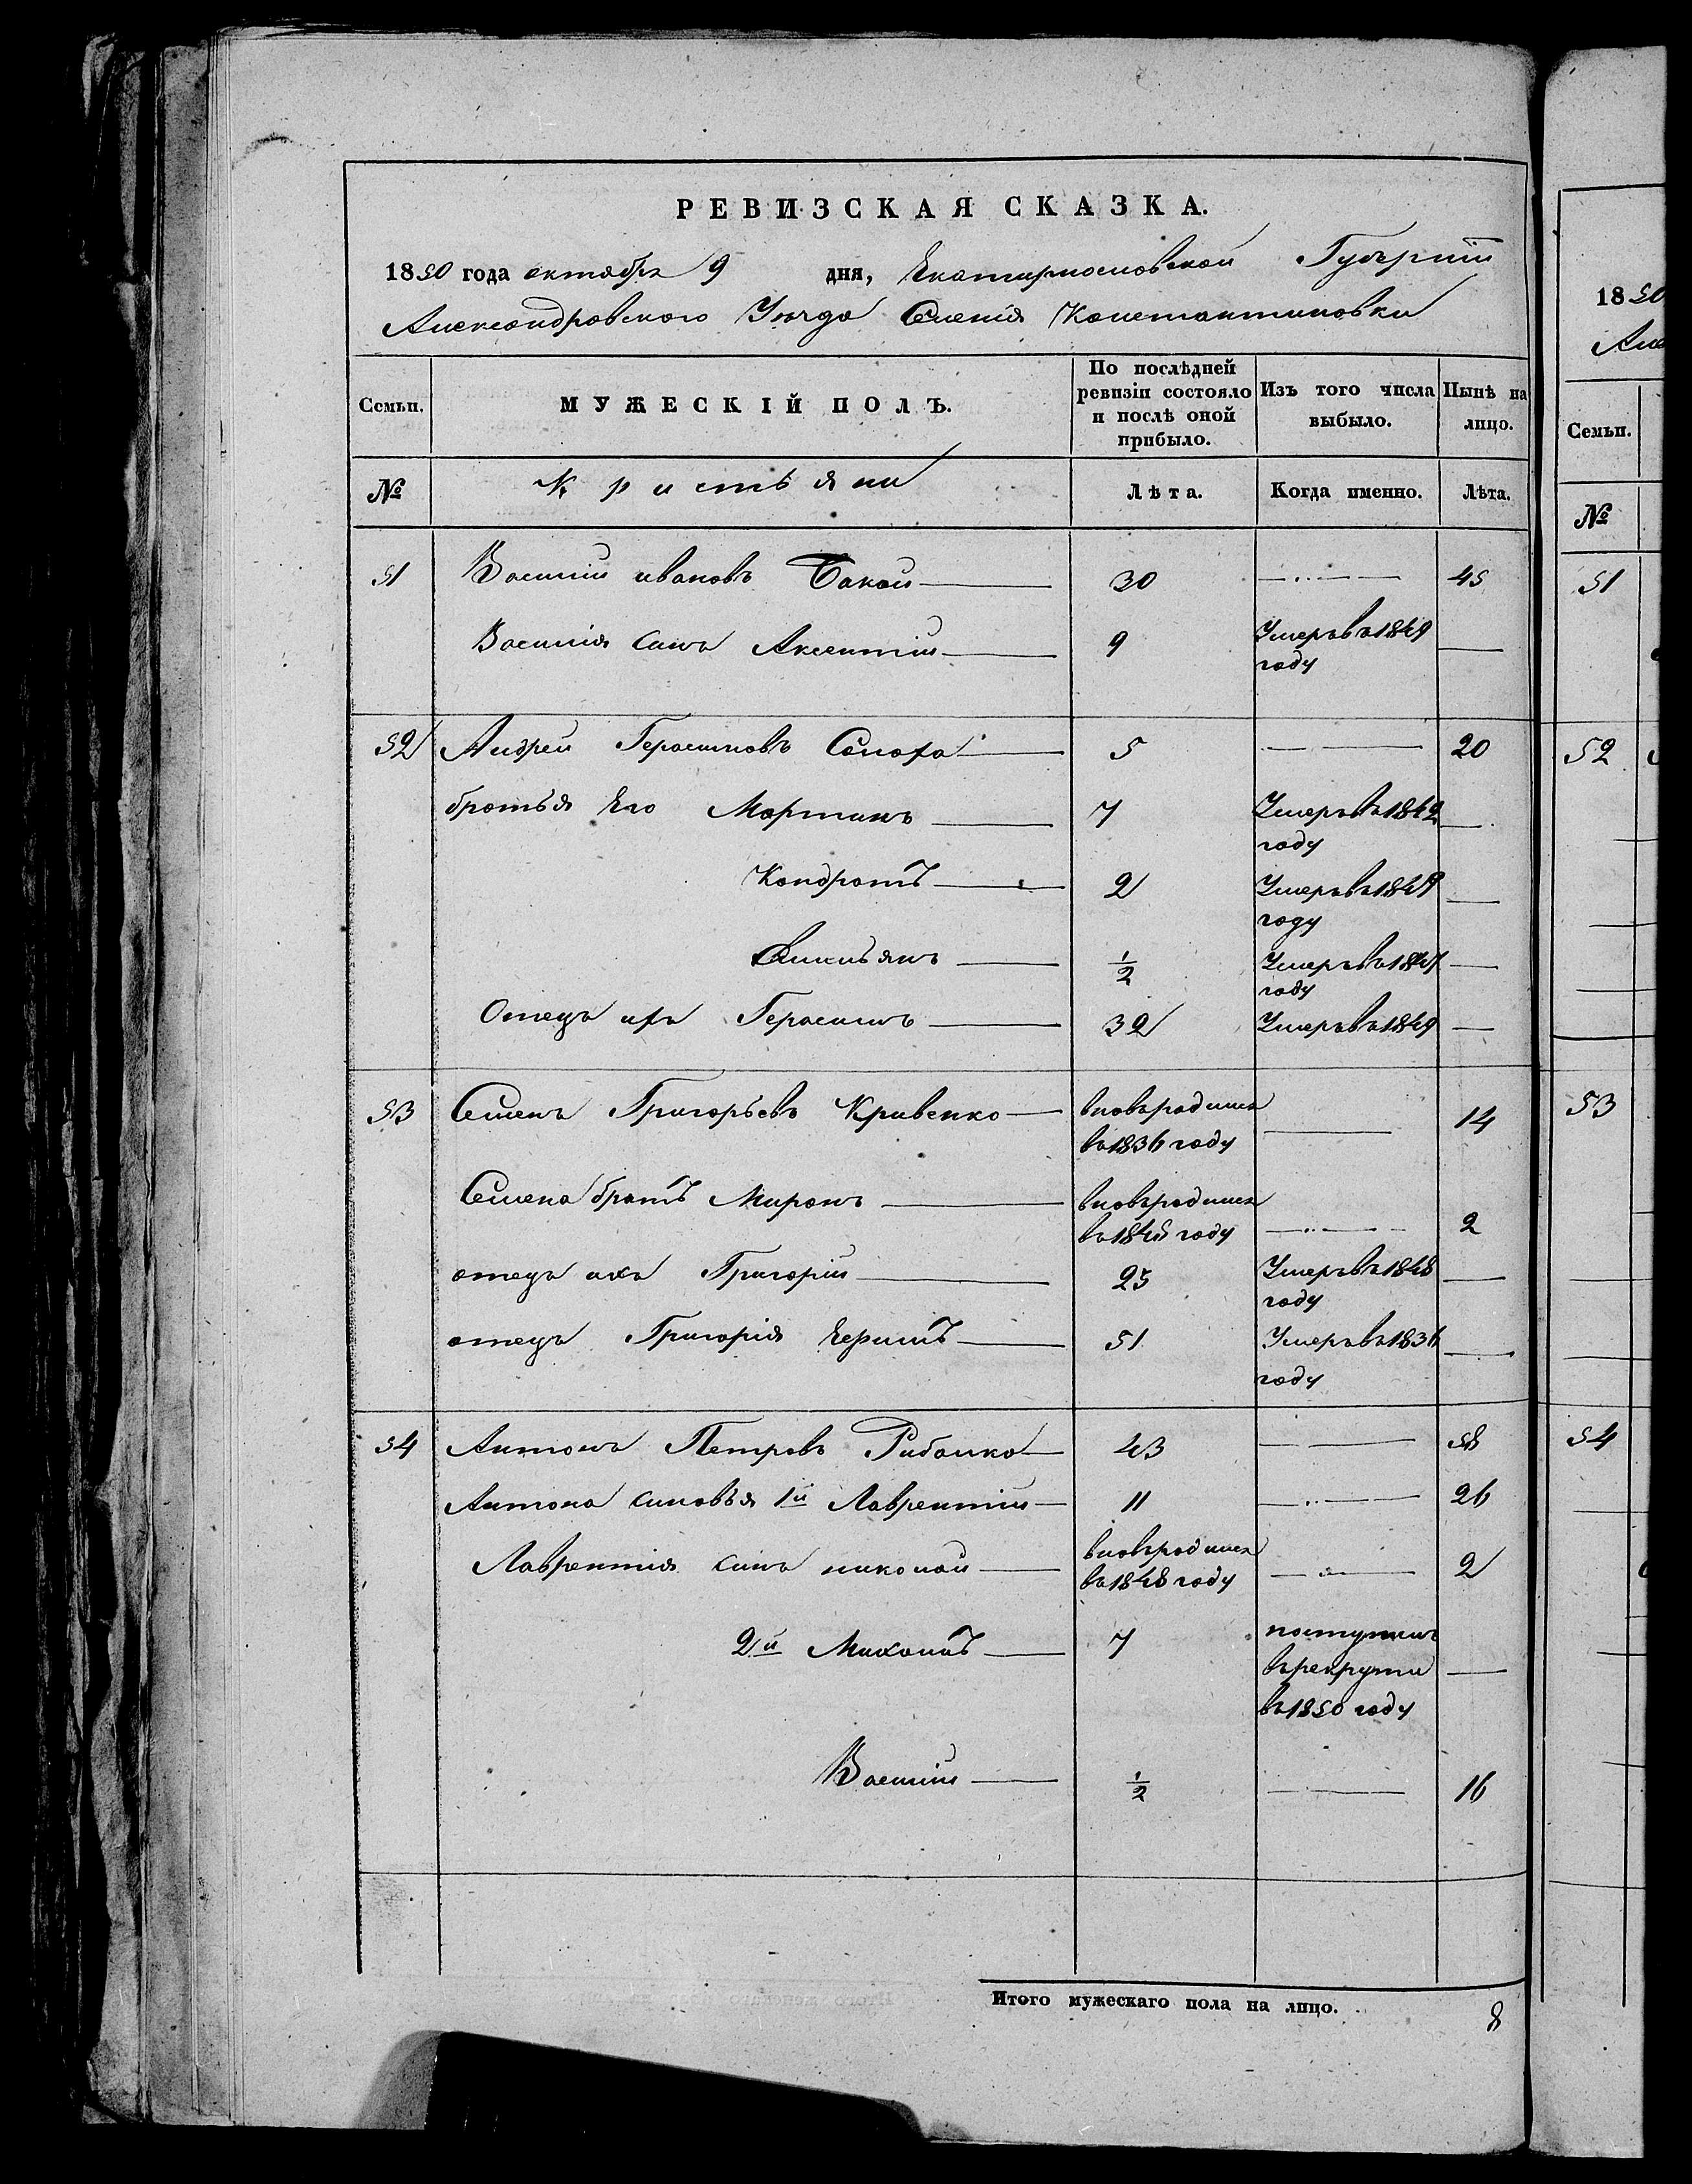 РЕВИЗСКАЯ СКАЗКА.
1850 года октября 9 дня, Екатериносновской Губернiи
Александровского Уѣзда Селенiя Константиновки
Семьи. МУЖЕСКIЙ ПОЛЪ. По послѣдней ревизiи состояло и послѣ оной прибыло. Изъ того числа выбыло. Нынѣ на лицо.
№ Кристьяни Лѣта. Когда именно. Лѣта.
51 Василiй ивановъ Бакай 30 45
Василiя синъ Аксентiй 9 Умеръ въ 1849
году
52 Андрей Герасимовъ Солоха 5 20
братья Его Мартинъ 7 Умеръ въ 1842
году
Кондратъ 2 Умеръ въ 1849
году
Емильянъ 1/2 Умеръ въ
году
Отецъ ихъ Герасимъ 32 Умеръ въ 1849
53 Семенъ Григорьевъ Кривенко вновьродился 14
въ 1836 году
Семена братъ Миронъ вновьродился
въ 1848 году 2
отецъ ихъ Григорiй 25 Умеръ въ 1848
году
отецъ Григорiя Ефимъ 51 Умеръ въ 1836
году
54 Антонъ Петровъ Рибалко 43 58
Антона синовья 1й Лаврентiй 11 26
Лаврентiя синъ николай вновьродился
въ 1848 году 2
2й Михаилъ 7 поступилъ
врекрути
въ 1850 году
Василiй 1/2 16
Итого мужескаго пола на лицо. 8
1850
Але
Семьи.
№
51
52
53
54